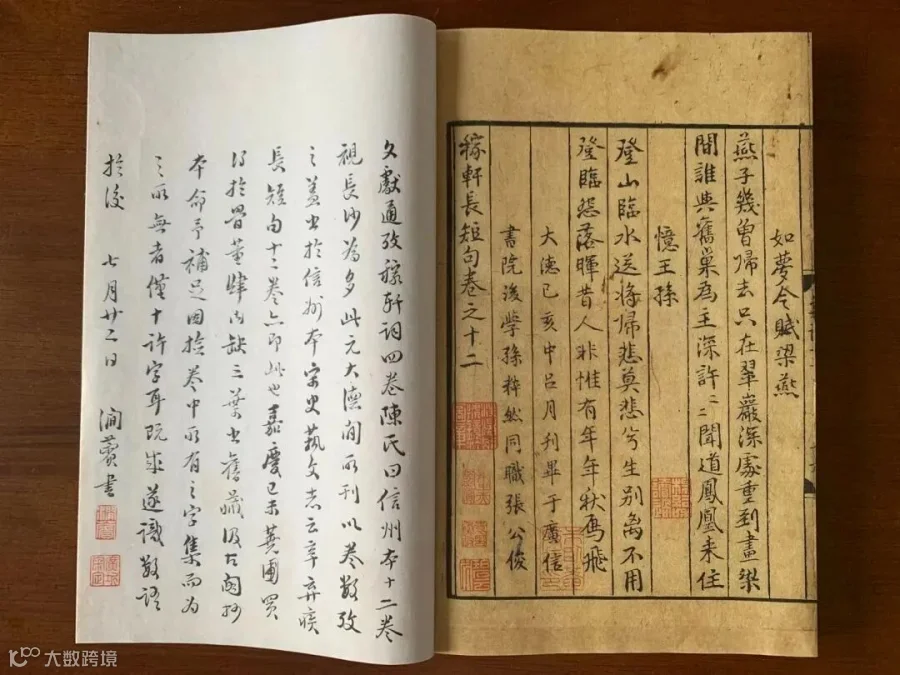 如夢令賦梁燕
燕子幾曾歸去只在翠巖深處重到畫梁
間誰與舊巢為主深許二聞道鳳凰来住
憶王孫
登山臨水送將歸悲莫悲兮生別離不用
登臨怨落暉昔人非惟有年年秋鴈飛
大德己亥中呂月刊畢于廣信
書院後學孫粹然同職張公俊
稼軒長短句卷之十二
文獻通攷稼軒詞四卷陳氏曰信州本十二卷
視長沙為多此元大德間所刊以卷數攷
之盖出於信州本宋史藝文志云辛弃疾
長短句十二卷亦即此也嘉慶己未蕘圃買
得於骨董肆内缺三葉出舊藏汲古閣抄
本命予補足因檢卷中所有之字集而為
之所無者僅十許字耳既成遂識數語
於後 七月廿二日 澗薲書
大数跨境